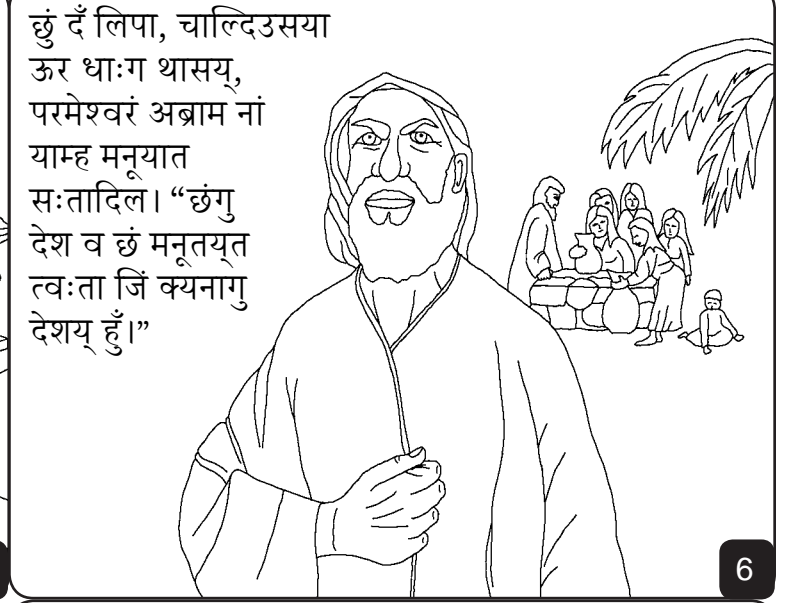 छुं दँ लिपा, चाल्दिउसया
ऊर धाःग थासय्,
परमेश्वरं अब्राम नां
याम्ह मनूयात
सःतादिल। “छंगु
देश व छं मनूतय्‌त
त्वःता जिं क्यनागु
देशय् हुँ।”
6